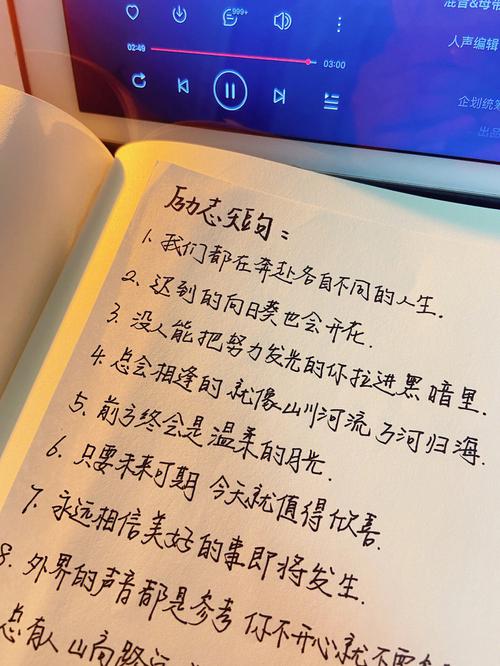 999+
混音&母带
02:49
03:00
人声编辑
企划统筹
出品
励志短句：
1. 我们都在奔赴各自不同的人生.
2. 迟到的向日葵也会开花.
3. 没人能把努力发光的你拉进黑暗里.
4. 总会相逢的 就像山川河流 万河归海.
5. 前方终会是温柔的月光.
6. 只要未来可期 今天就值得欣喜.
7. 永远相信美好的事即将发生.
8. 外界的声音都是参考 你不开心就不要
总有人山高路远